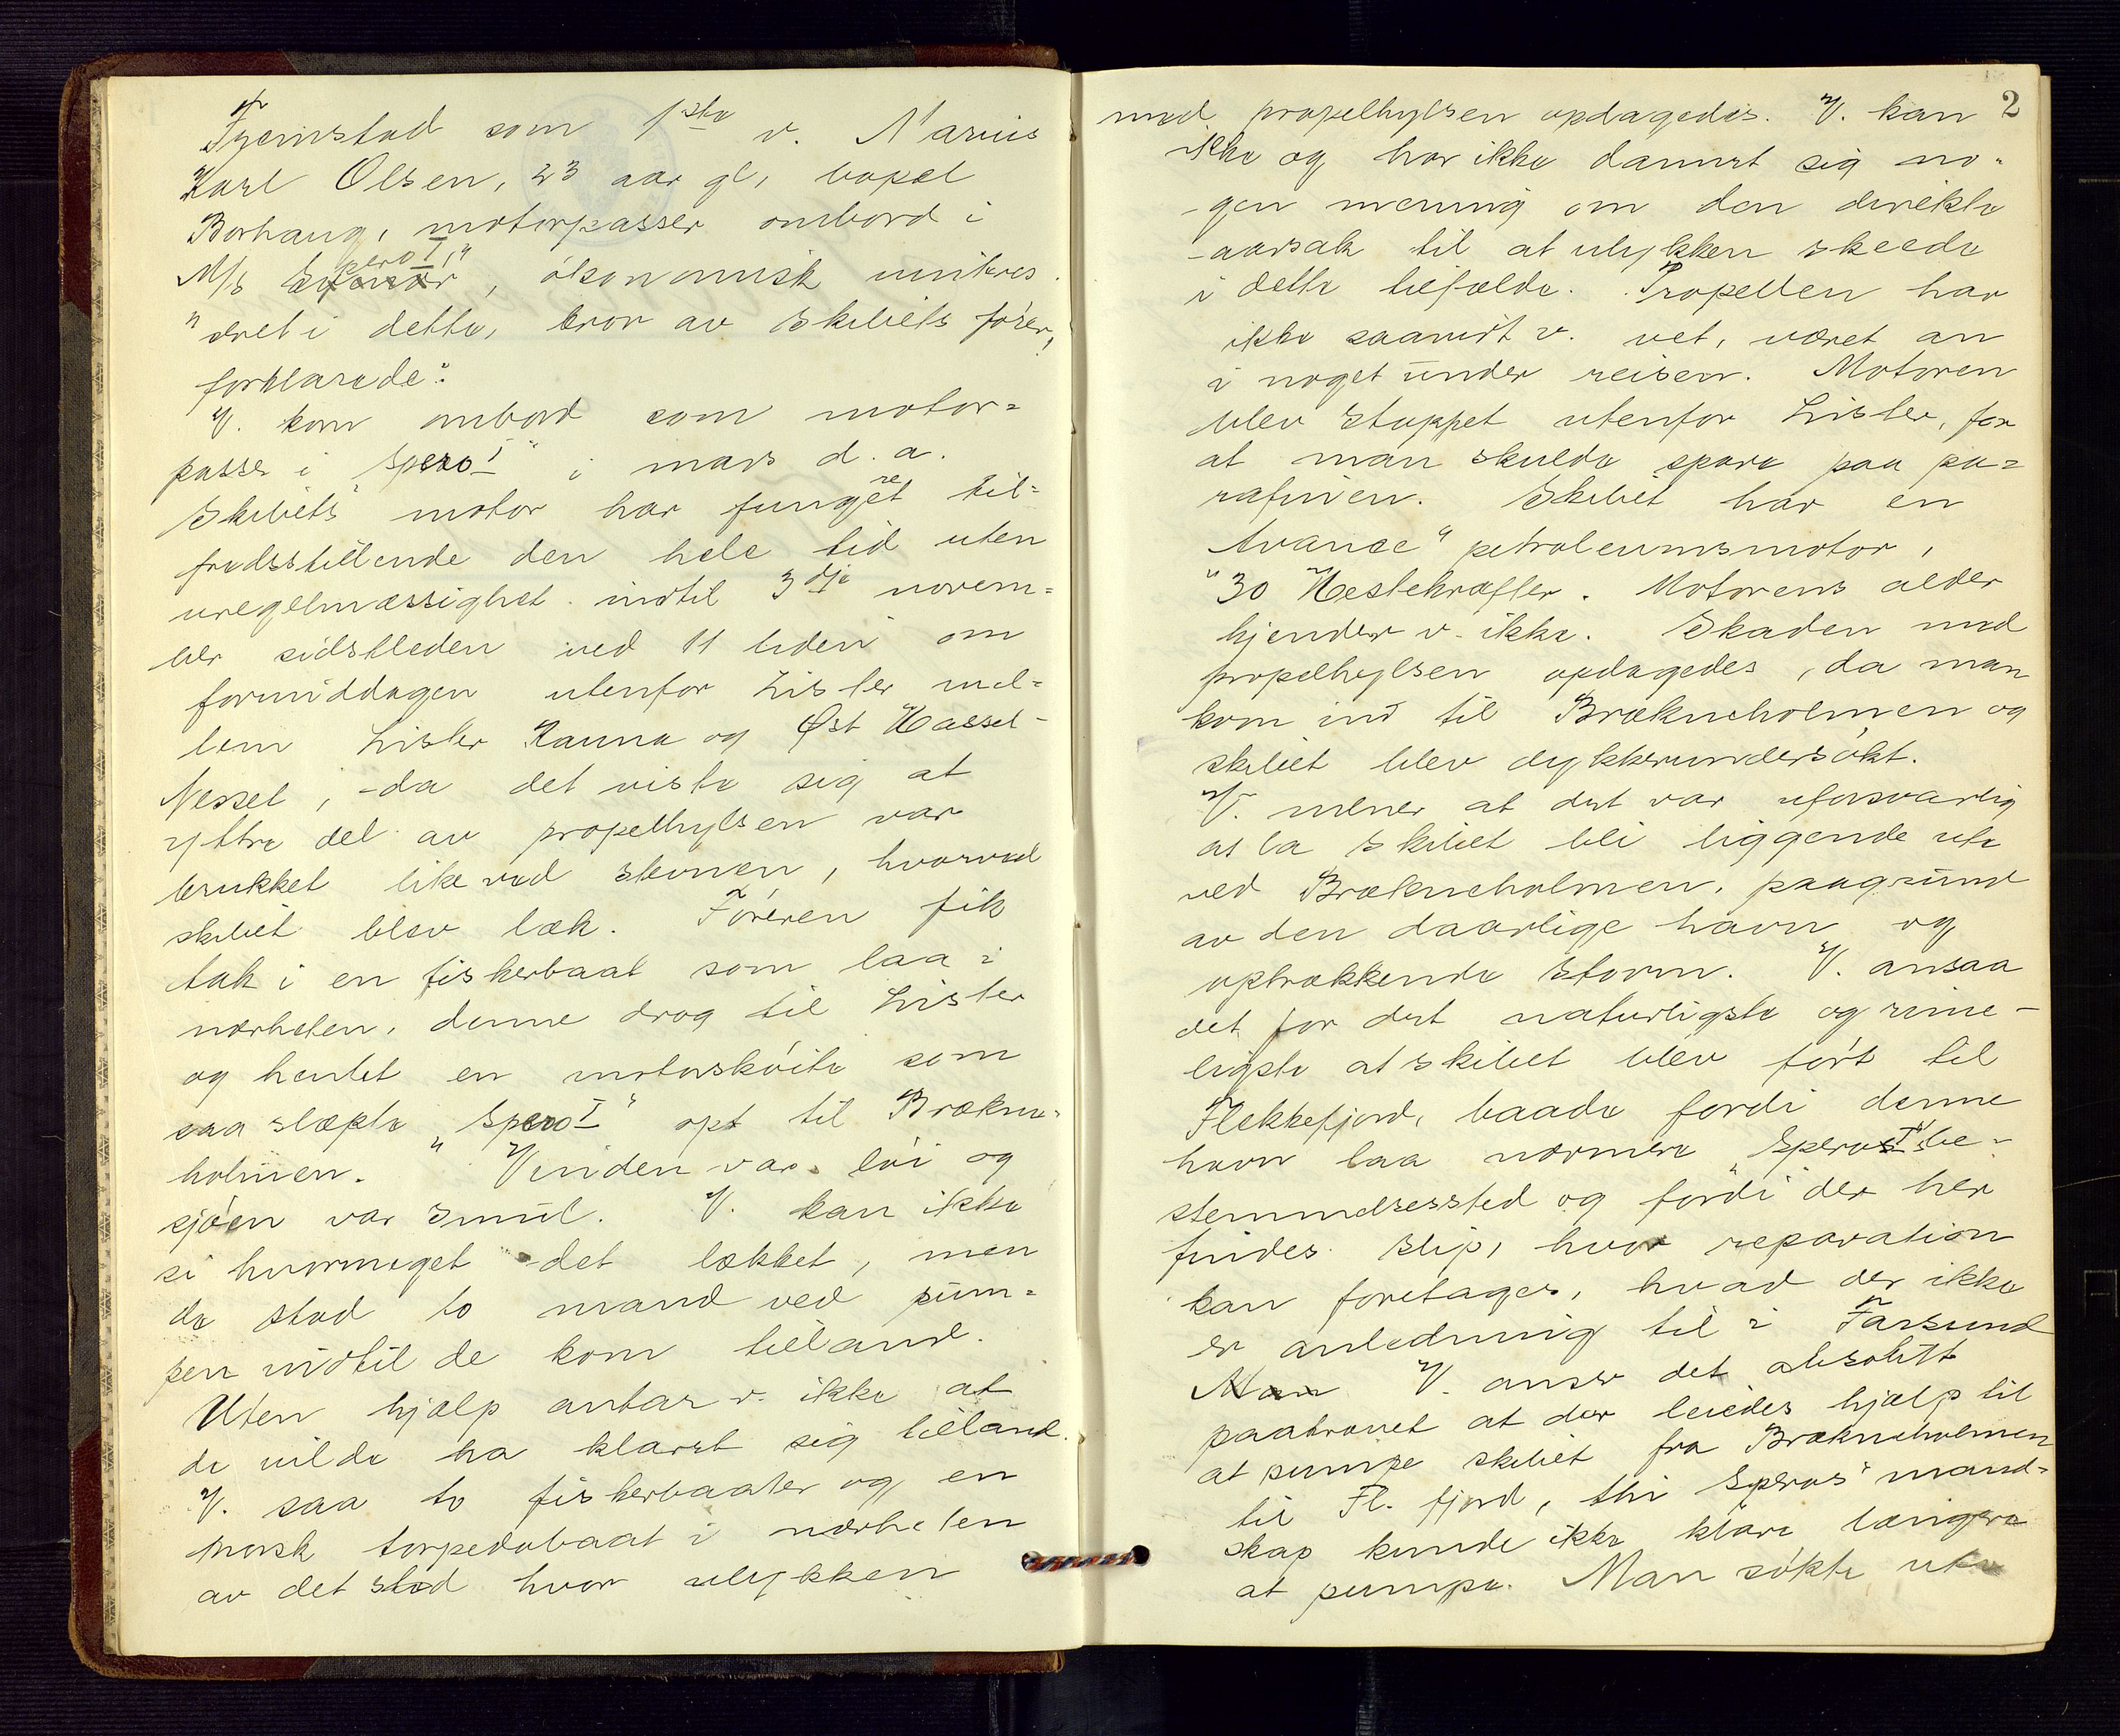 Fremstod som 1ste v. Marius
Karl Olsen, 23 aar gl, bopæl
Borhaug, motorpasser ombord i
M/S "Spero I", økonomisk uinteres-
seret i dette, bror av skibets fører,
forklarede:
V. kom ombord som motor=
passer i "Spero I" i mars d.a.
Skibets motor har fungeret til=
fredsstillende den hele tid uten
uregelmæssighet indtil 3dje novem=
ber sidstleden ved 11 tiden om
formiddagen utenfor Lister mel=
lem Lister Rauna og Øst Hassel-
Nesset, da det viste sig at
yttre del av propelhylsen var
brukket like ved stevnen, hvorved
skibet blev læk. Føreren fik
tak i en fiskerbaat som laa i
nærheten, denne drog til Lister
og hentet en motorskøite som
saa slæpte "Spero I" opt til Brækne=
holmen. Vinden var løi og
sjøen var smul. V. kan ikke
si hvormeget det lækket, men
de stod to mand ved pum=
pen indtil de kom tilland.
Uten hjælp antar v. ikke at
de vilde ha klaret sig tilland.
V. saa to fiskerbaater og en
norsk torpedobaat i nærheten
av det sted hvor ulykken
2
med propelhylsen opdagedes. V. kan
ikke og har ikke dannet sig no-
gen mening om den direkte
aarsak til at ulykken skeede
i dette tilfælde. Propellen har
ikke saavidt v. vet, været an
i noget under reisen. Motoren
blev stoppet utenfor Lister, for
at man skulde spare paa pa=
rafinen. Skibet har en
"Avance" petroleumsmotor,
30 Hestekræfter. Motorens alder
kjender v. ikke. Skaden med
propelhylsen opdagedes, da man
kom ind til Brækneholmen og
skibet blev dykkerundersøkt.
V. mener at det var uforsvarlig
at la skibet bli liggende ute
ved Brækneholmen, paagrund
av den daarlige havn og
optrækkende storm. V. ansaa
det for det naturligste og rime-
ligste at skibet blev ført til
Flekkefjord, baade fordi denne
havn laa nærmere "Spero I's" be-
stemmelsessted og fordi der her
findes slip, hvor reparation
kan foretages, hvad der ikke
er anledning til i Farsund
Man V. anser det absolutt
paakrævet at der leiedes hjælp til
at pumpe skibet fra Brækneholmen
til Fl. fjord, thi Speros mand=
skap kunde ikke klare længere
at pumpe. Man søkte